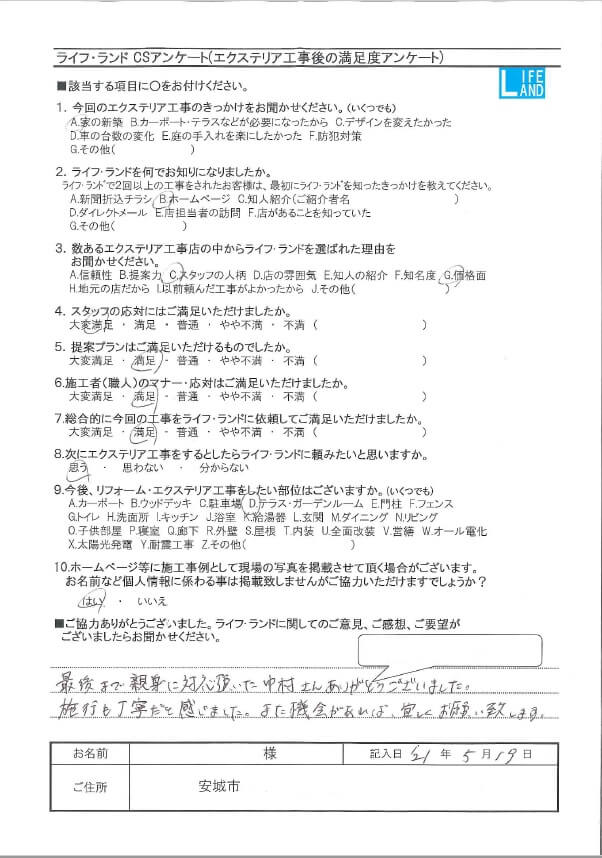 ライフ・ランド CSアンケート(エクステリア工事後の満足度アンケート)
LIFE LAND
■該当する項目に〇をお付けください。
1. 今回のエクステリア工事のきっかけをお聞かせください。(いくつでも)
A.家の新築 B.カーポート・テラスなどが必要になったから C.デザインを変えたかった
D.車の台数の変化 E.庭の手入れを楽にしたかった F.防犯対策
G.その他( )
2. ライフ・ランドを何でお知りになりましたか。
ライフ・ランドで2回以上の工事をされたお客様は、最初にライフ・ランドを知ったきっかけを教えてください。
A.新聞折込チラシ B.ホームページ C.知人紹介(ご紹介者名 )
D.ダイレクトメール E.店担当者の訪問 F.店があることを知っていた
G.その他( )
3. 数あるエクステリア工事店の中からライフ・ランドを選ばれた理由を
お聞かせください。
A.信頼性 B.提案力 C.スタッフの人柄 D.店の雰囲気 E.知人の紹介 F.知名度 G.価格面
H.地元の店だから I.以前頼んだ工事がよかったから J.その他( )
4. スタッフの応対にはご満足いただけましたか。
大変満足 ・ 満足 ・ 普通 ・ やや不満 ・ 不満 ( )
5. 提案プランはご満足いただけるものでしたか。
大変満足 ・ 満足 ・ 普通 ・ やや不満 ・ 不満 ( )
6.施工者(職人)のマナー・応対はご満足いただけましたか。
大変満足 ・ 満足 ・ 普通 ・ やや不満 ・ 不満 ( )
7.総合的に今回の工事をライフ・ランドに依頼してご満足いただけましたか。
大変満足 ・ 満足 ・ 普通 ・ やや不満 ・ 不満 ( )
8.次にエクステリア工事をするとしたらライフ・ランドに頼みたいと思いますか。
思う ・ 思わない ・ 分からない
9.今後、リフォーム・エクステリア工事をしたい部位はございますか。(いくつでも)
A.カーポート B.ウッドデッキ C.駐車場 D.テラス・ガーデンルーム E.門柱 F.フェンス
G.トイレ H.洗面所 I.キッチン J.浴室 K.給湯器 L.玄関 M.ダイニング N.リビング
O.子供部屋 P.寝室 Q.廊下 R.外壁 S.屋根 T.内装 U.全面改装 V.営繕 W.オール電化
X.太陽光発電 Y.耐震工事 Z.その他( )
10.ホームページ等に施工事例として現場の写真を掲載させて頂く場合がございます。
お名前など個人情報に係わる事は掲載致しませんがご協力いただけますでしょうか?
はい ・ いいえ
■ご協力ありがとうございました。ライフ・ランドに関してのご意見、ご感想、ご要望が
ございましたらお聞かせください。
最後まで親身に対応頂いた中村さんありがとうございました。
施行も丁寧だと感じました。また機会があれば、宜しくお願い致します。
お名前 様 記入日 '21 年 5 月 19 日
ご住所 安城市